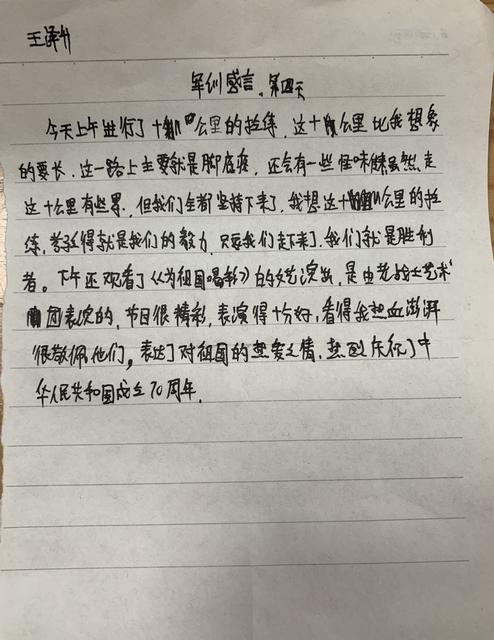 王泽升
军训感言,第四天
今天上午进行了十公里的拉练,这十公里比我想象
的要长,这一路上主要就是脚底疼,还会有一些怪味儿虽然走
这十公里有些累,但我们全都坚持下来了,我想这十公里的拉
练,考验得就是我们的毅力,只要我们走下来了,我们就是胜利
者。下午还观看了《为祖国喝彩》的文艺演出,是由老战士艺术
团表演的,节目很精彩,表演得十分好,看得我热血澎湃
很敬佩他们,表达了对祖国的热爱之情,热烈庆祝了中
华人民共和国成立70周年.